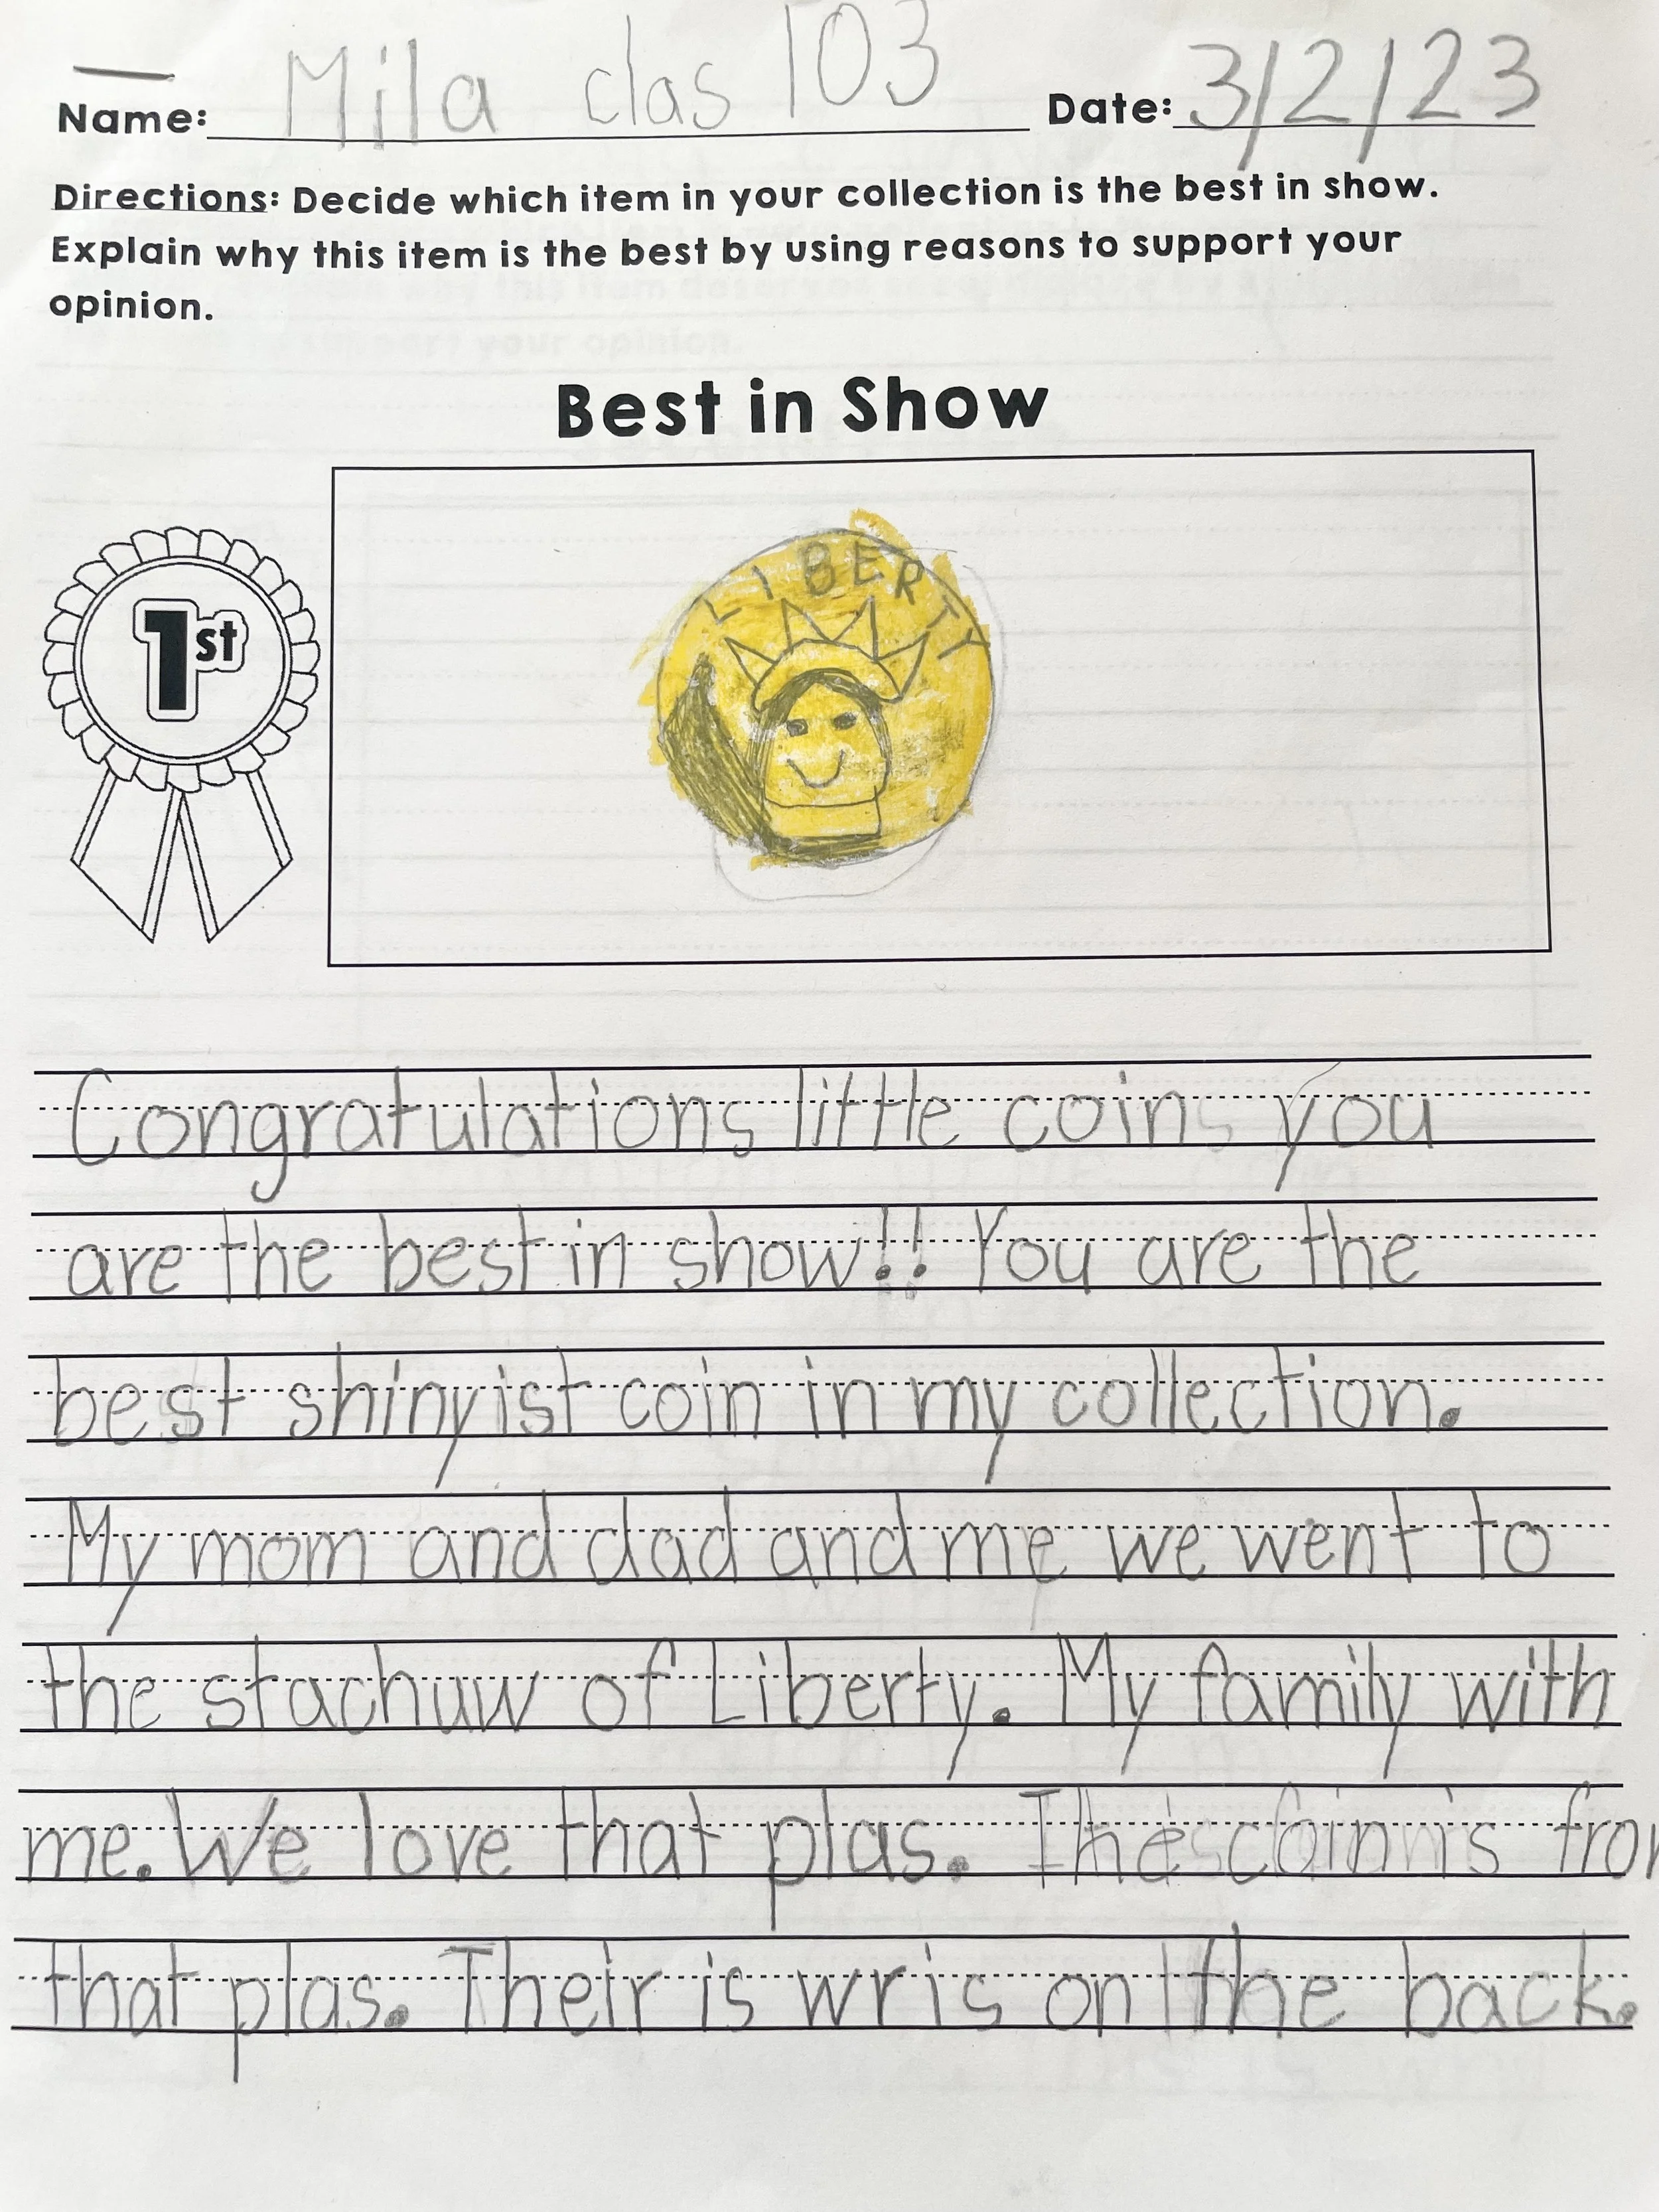 Name: Mila clas 103 Date: 3/2/23
Directions: Decide which item in your collection is the best in show.
Explain why this item is the best by using reasons to support your
opinion.
Best in Show
1st
LIBERTY
Congratulations little coin you
are the best in show!! You are the
best shinyist coin in my collection.
My mom and dad and me we went to
the stachuw of Liberty. My family with
me. We love that plas. The coin is from
that plas. Their is wris on the back.